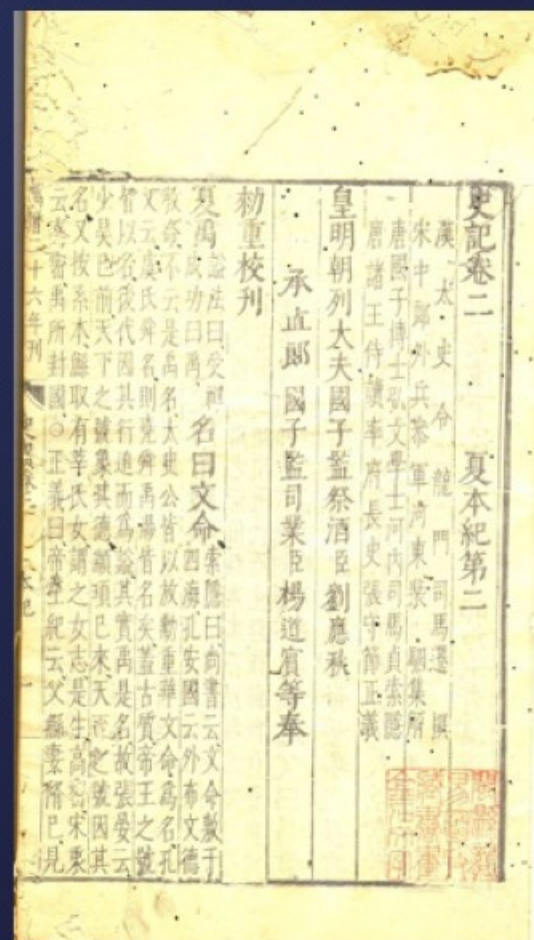 史記卷二 夏本紀第二
漢太史令龍門司馬遷撰
宋中郎外兵參軍河東裴駰集解
唐國子博士弘文學士河內司馬貞索隱
唐諸王侍讀率府長史張守節正義
皇明朝列大夫國子監祭酒臣劉應秋
承直郎國子監司業臣楊道賓等奉
勑重校刊
夏禹
謚法曰受禪
成功曰禹
名曰文命
索隱曰尚書云文命敷于
四海孔安國云外布文德
教命不云是禹名太史公皆以放勳重華文命為名孔
又云虞氏舜名則堯舜禹湯皆名矣蓋古質帝王之號
皆以名後代因其行追而為謚其實禹是名故張晏云
少昊已前天下之號象其德顓頊已來天下之號因其
名又按系本鯀取有莘氏女謂之女志是生高密宋衷
云高密禹所封國○正義曰帝王紀云父鯀妻脩已見
二十六年刊
本紀 一